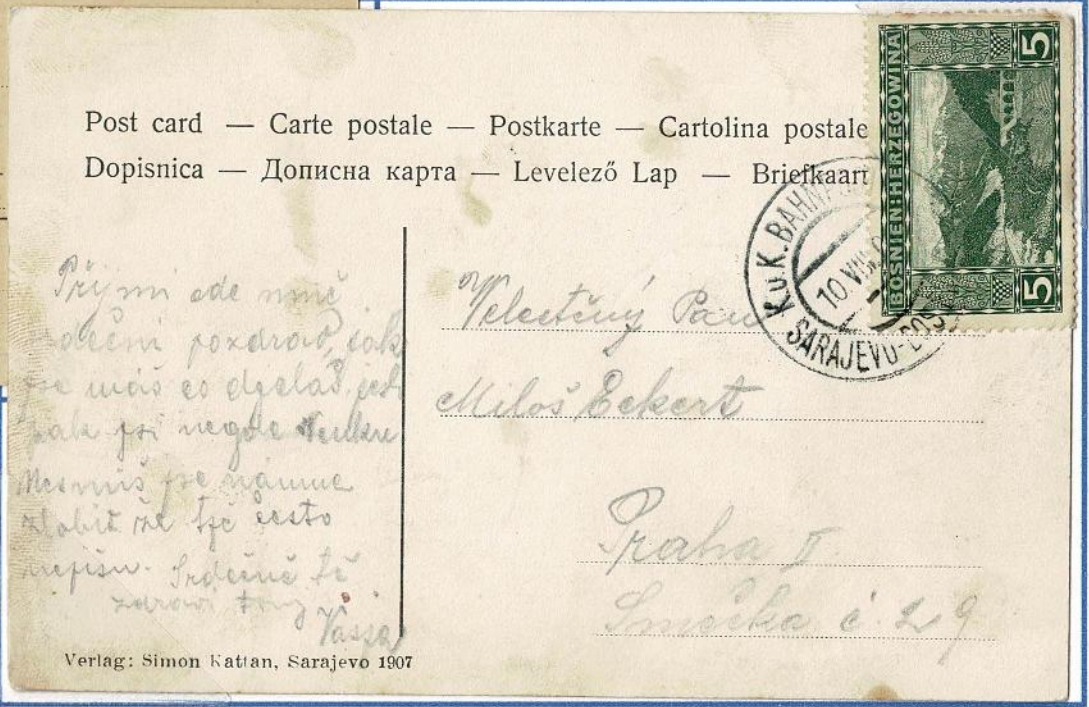 Post card — Carte postale — Postkarte — Cartolina postale
Dopisnica — Дописна карта — Levelező Lap — Briefkaart
BOSNIEN HERZEGOWINA
5
5
K.u.K. BAHN
10 VIII
SARAJEVO-BOS
Přijmi ode mně
pozdrav, jak
se máš co
pak jsi negde
Nesmíš se
zlobit že často
nepíšu. Srdečně tě
zdraví
Velectěný Pan
Miloš Eckert
Praha II
Smečka č. 29
Verlag: Simon Kattan, Sarajevo 1907